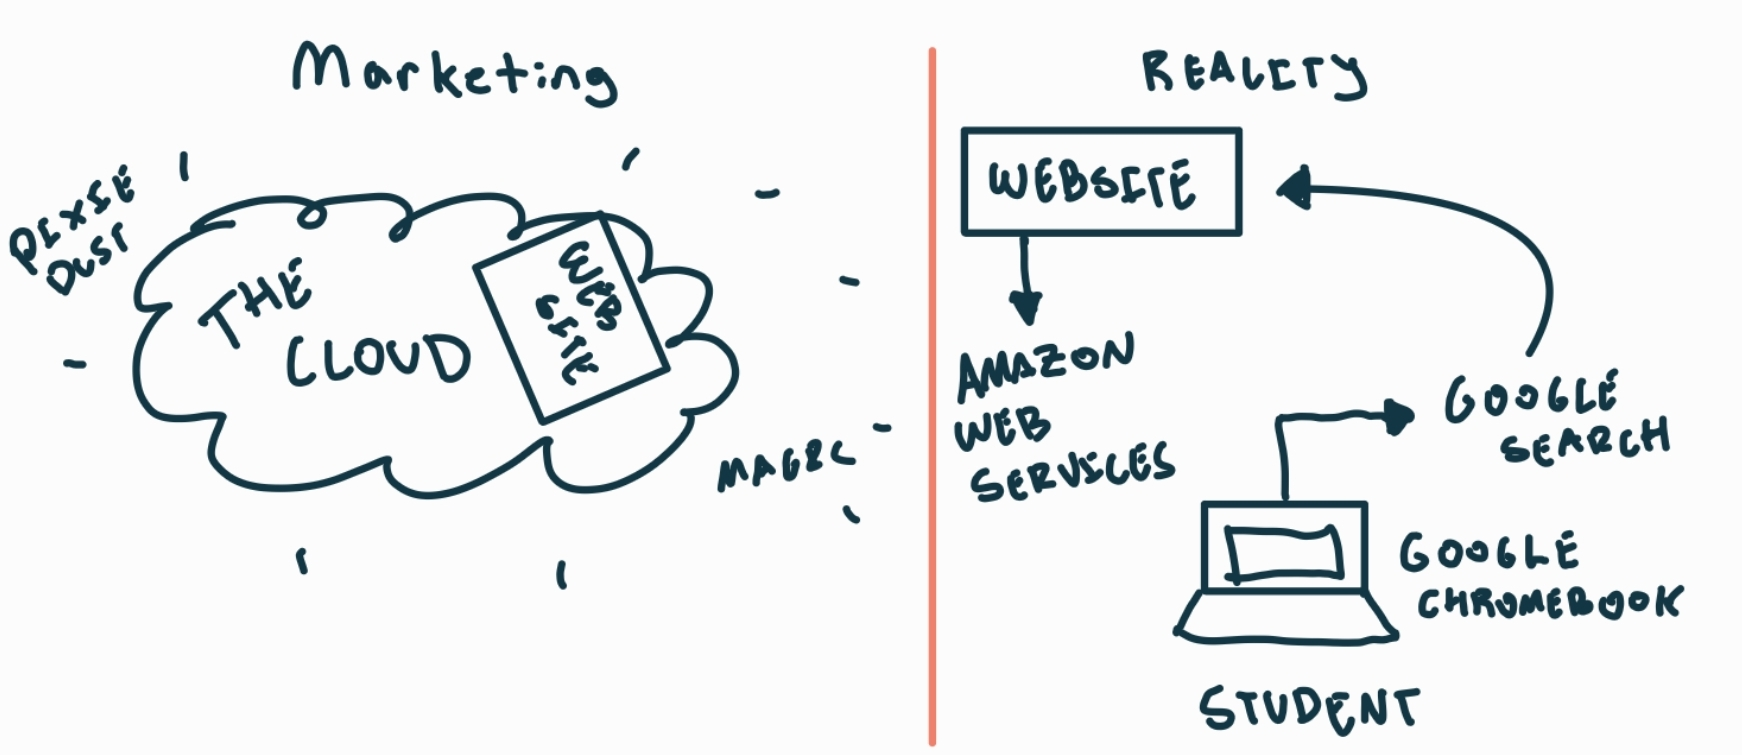 Marketing
PIXIE
DUST
THE
CLOUD
WEB
SITE
MAGIC
REALITY
WEBSITE
AMAZON
WEB
SERVICES
GOOGLE
SEARCH
GOOGLE
CHROMEBOOK
STUDENT